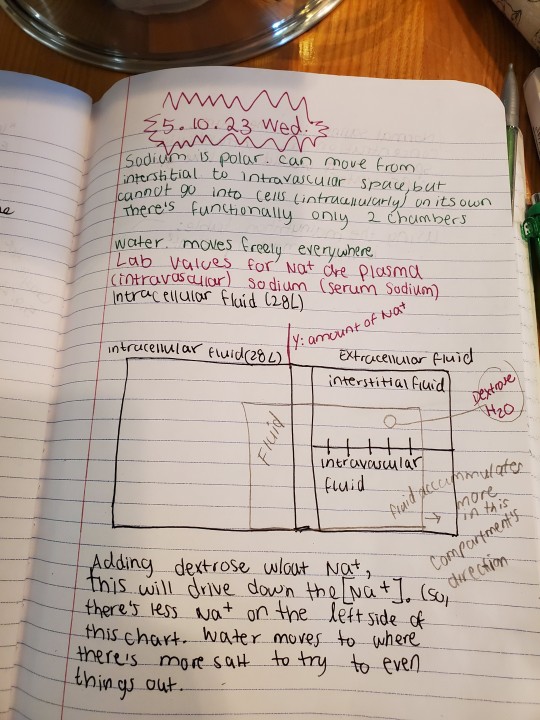 5.10.23 Wed.
Sodium is polar. can move from
interstitial to intravascular space, but
cannot go into cells (intracellularly) on its own
There's functionally only 2 chambers
Water. moves freely everywhere
Lab values for Na+ are plasma
(intravascular) sodium (serum sodium)
Intracellular fluid (28L)
Y: amount of Na+
intracellular fluid (28L)
Extracellular fluid
interstitial fluid
Dextrose
H2O
Fluid
intravascular
fluid
fluid accummulates
more
in this
compartment's
direction
Adding dextrose w/out Na+,
this will drive down the [Na+]. (so,
there's less Na+ on the left side of
this chart. Water moves to where
there's more salt to try to even
things out.